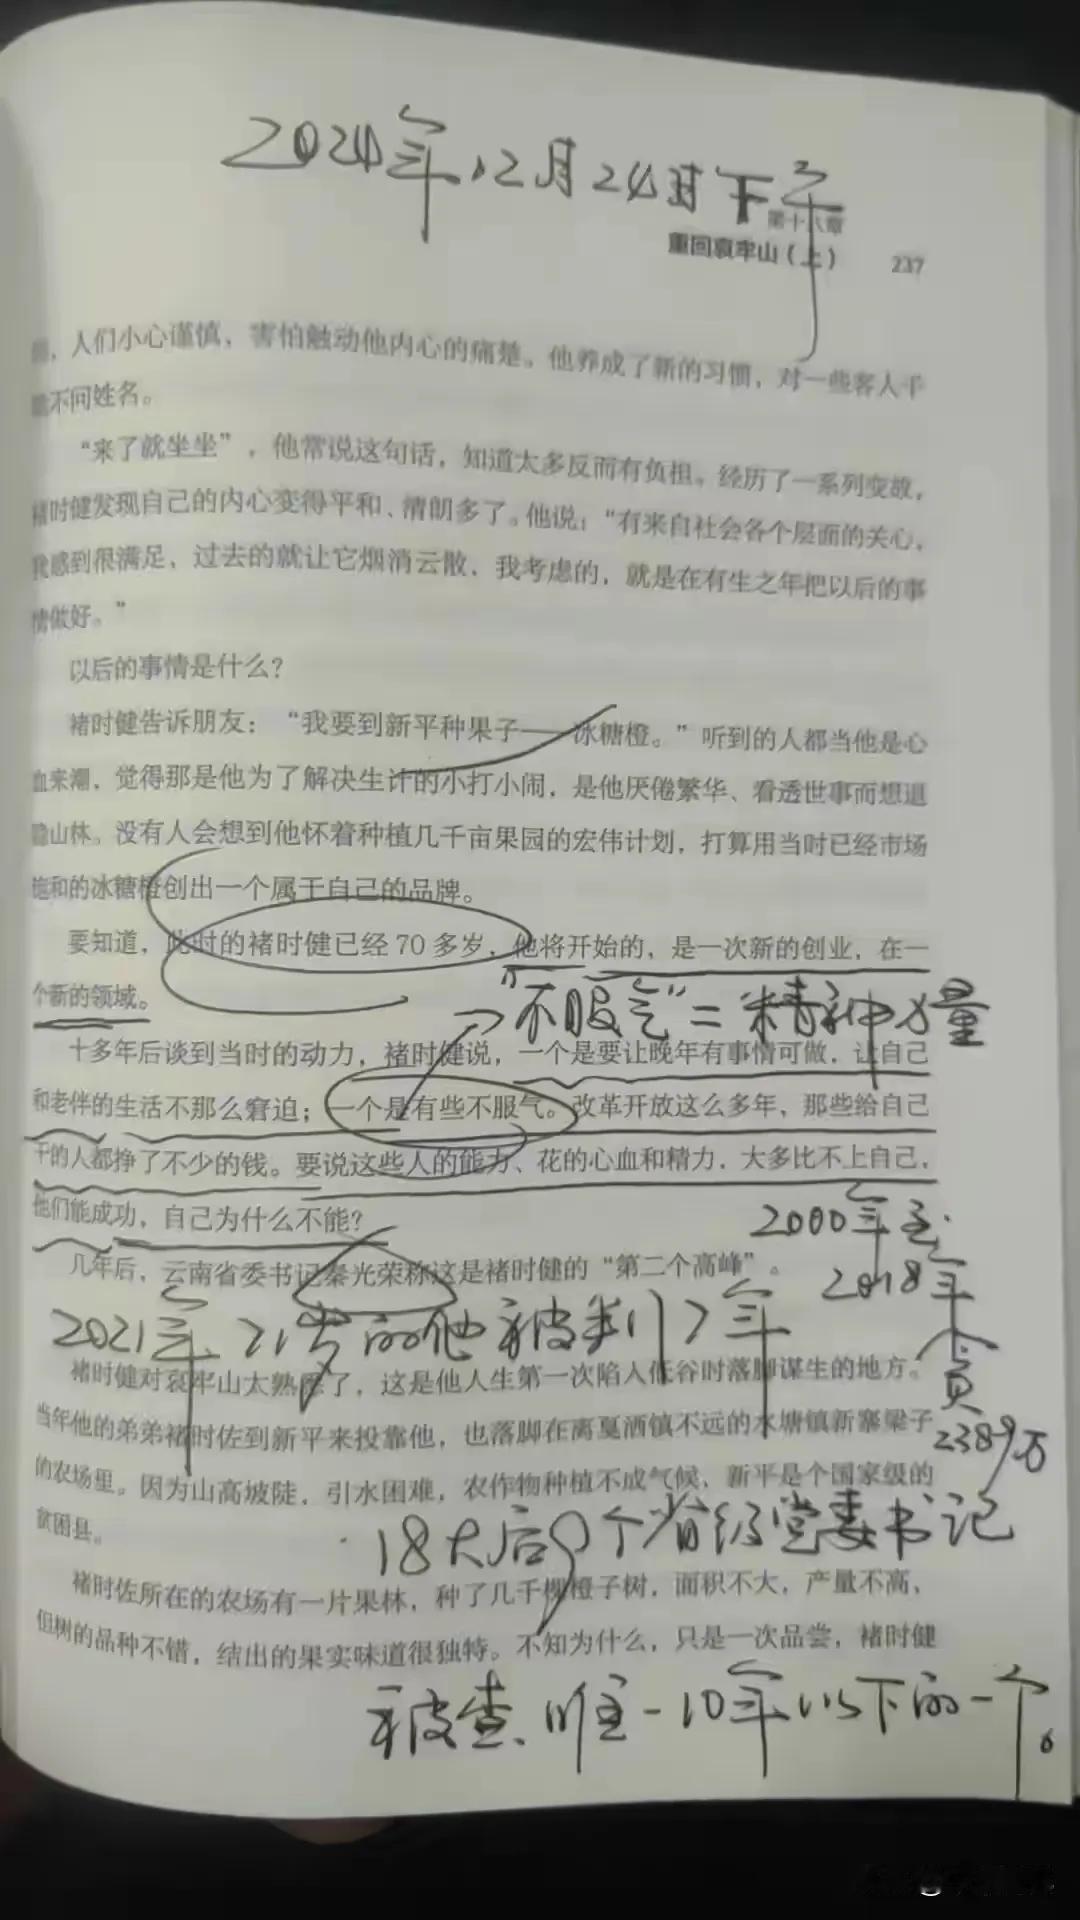 2024年12月24日下午
第十八章
重回哀牢山（上） 237
人们小心谨慎，害怕触动他内心的痛楚。他养成了新的习惯，对一些客人干
不问姓名。
“来了就坐坐”，他常说这句话，知道太多反而有负担。经历了一系列变故，
褚时健发现自己的内心变得平和、清朗多了。他说：“有来自社会各个层面的关心，
我感到很满足，过去的就让它烟消云散，我考虑的，就是在有生之年把以后的事
情做好。”
以后的事情是什么？
褚时健告诉朋友：“我要到新平种果子——冰糖橙。”听到的人都当他是心
血来潮，觉得那是他为了解决生计的小打小闹，是他厌倦繁华、看透世事而想退
隐山林。没有人会想到他怀着种植几千亩果园的宏伟计划，打算用当时已经市场
饱和的冰糖橙创出一个属于自己的品牌。
要知道，此时的褚时健已经70多岁，他将开始的，是一次新的创业，在一
个新的领域。
“不服气”=精神力量
十多年后谈到当时的动力，褚时健说，一个是要让晚年有事情可做，让自己
和老伴的生活不那么窘迫；一个是有些不服气。改革开放这么多年，那些给自己
干的人都挣了不少的钱。要说这些人的能力、花的心血和精力，大多比不上自己，
他们能成功，自己为什么不能？
2000年至
几年后，云南省委书记秦光荣称这是褚时健的“第二个高峰”。
2018年
2021年，71岁的他被判7年
贪
2389万
褚时健对哀牢山太熟悉了，这是他人生第一次陷入低谷时落脚谋生的地方。
当年他的弟弟褚时佐到新平来投靠他，也落脚在离戛洒镇不远的水塘镇新寨梁子
的农场里。因为山高坡陡，引水困难，农作物种植不成气候，新平是个国家级的
贫困县。
18大后9个省级党委书记
褚时佐所在的农场有一片果林，种了几千棵橙子树，面积不大，产量不高，
但树的品种不错，结出的果实味道很独特。不知为什么，只是一次品尝，褚时健
被查、唯一10年以下的一个。